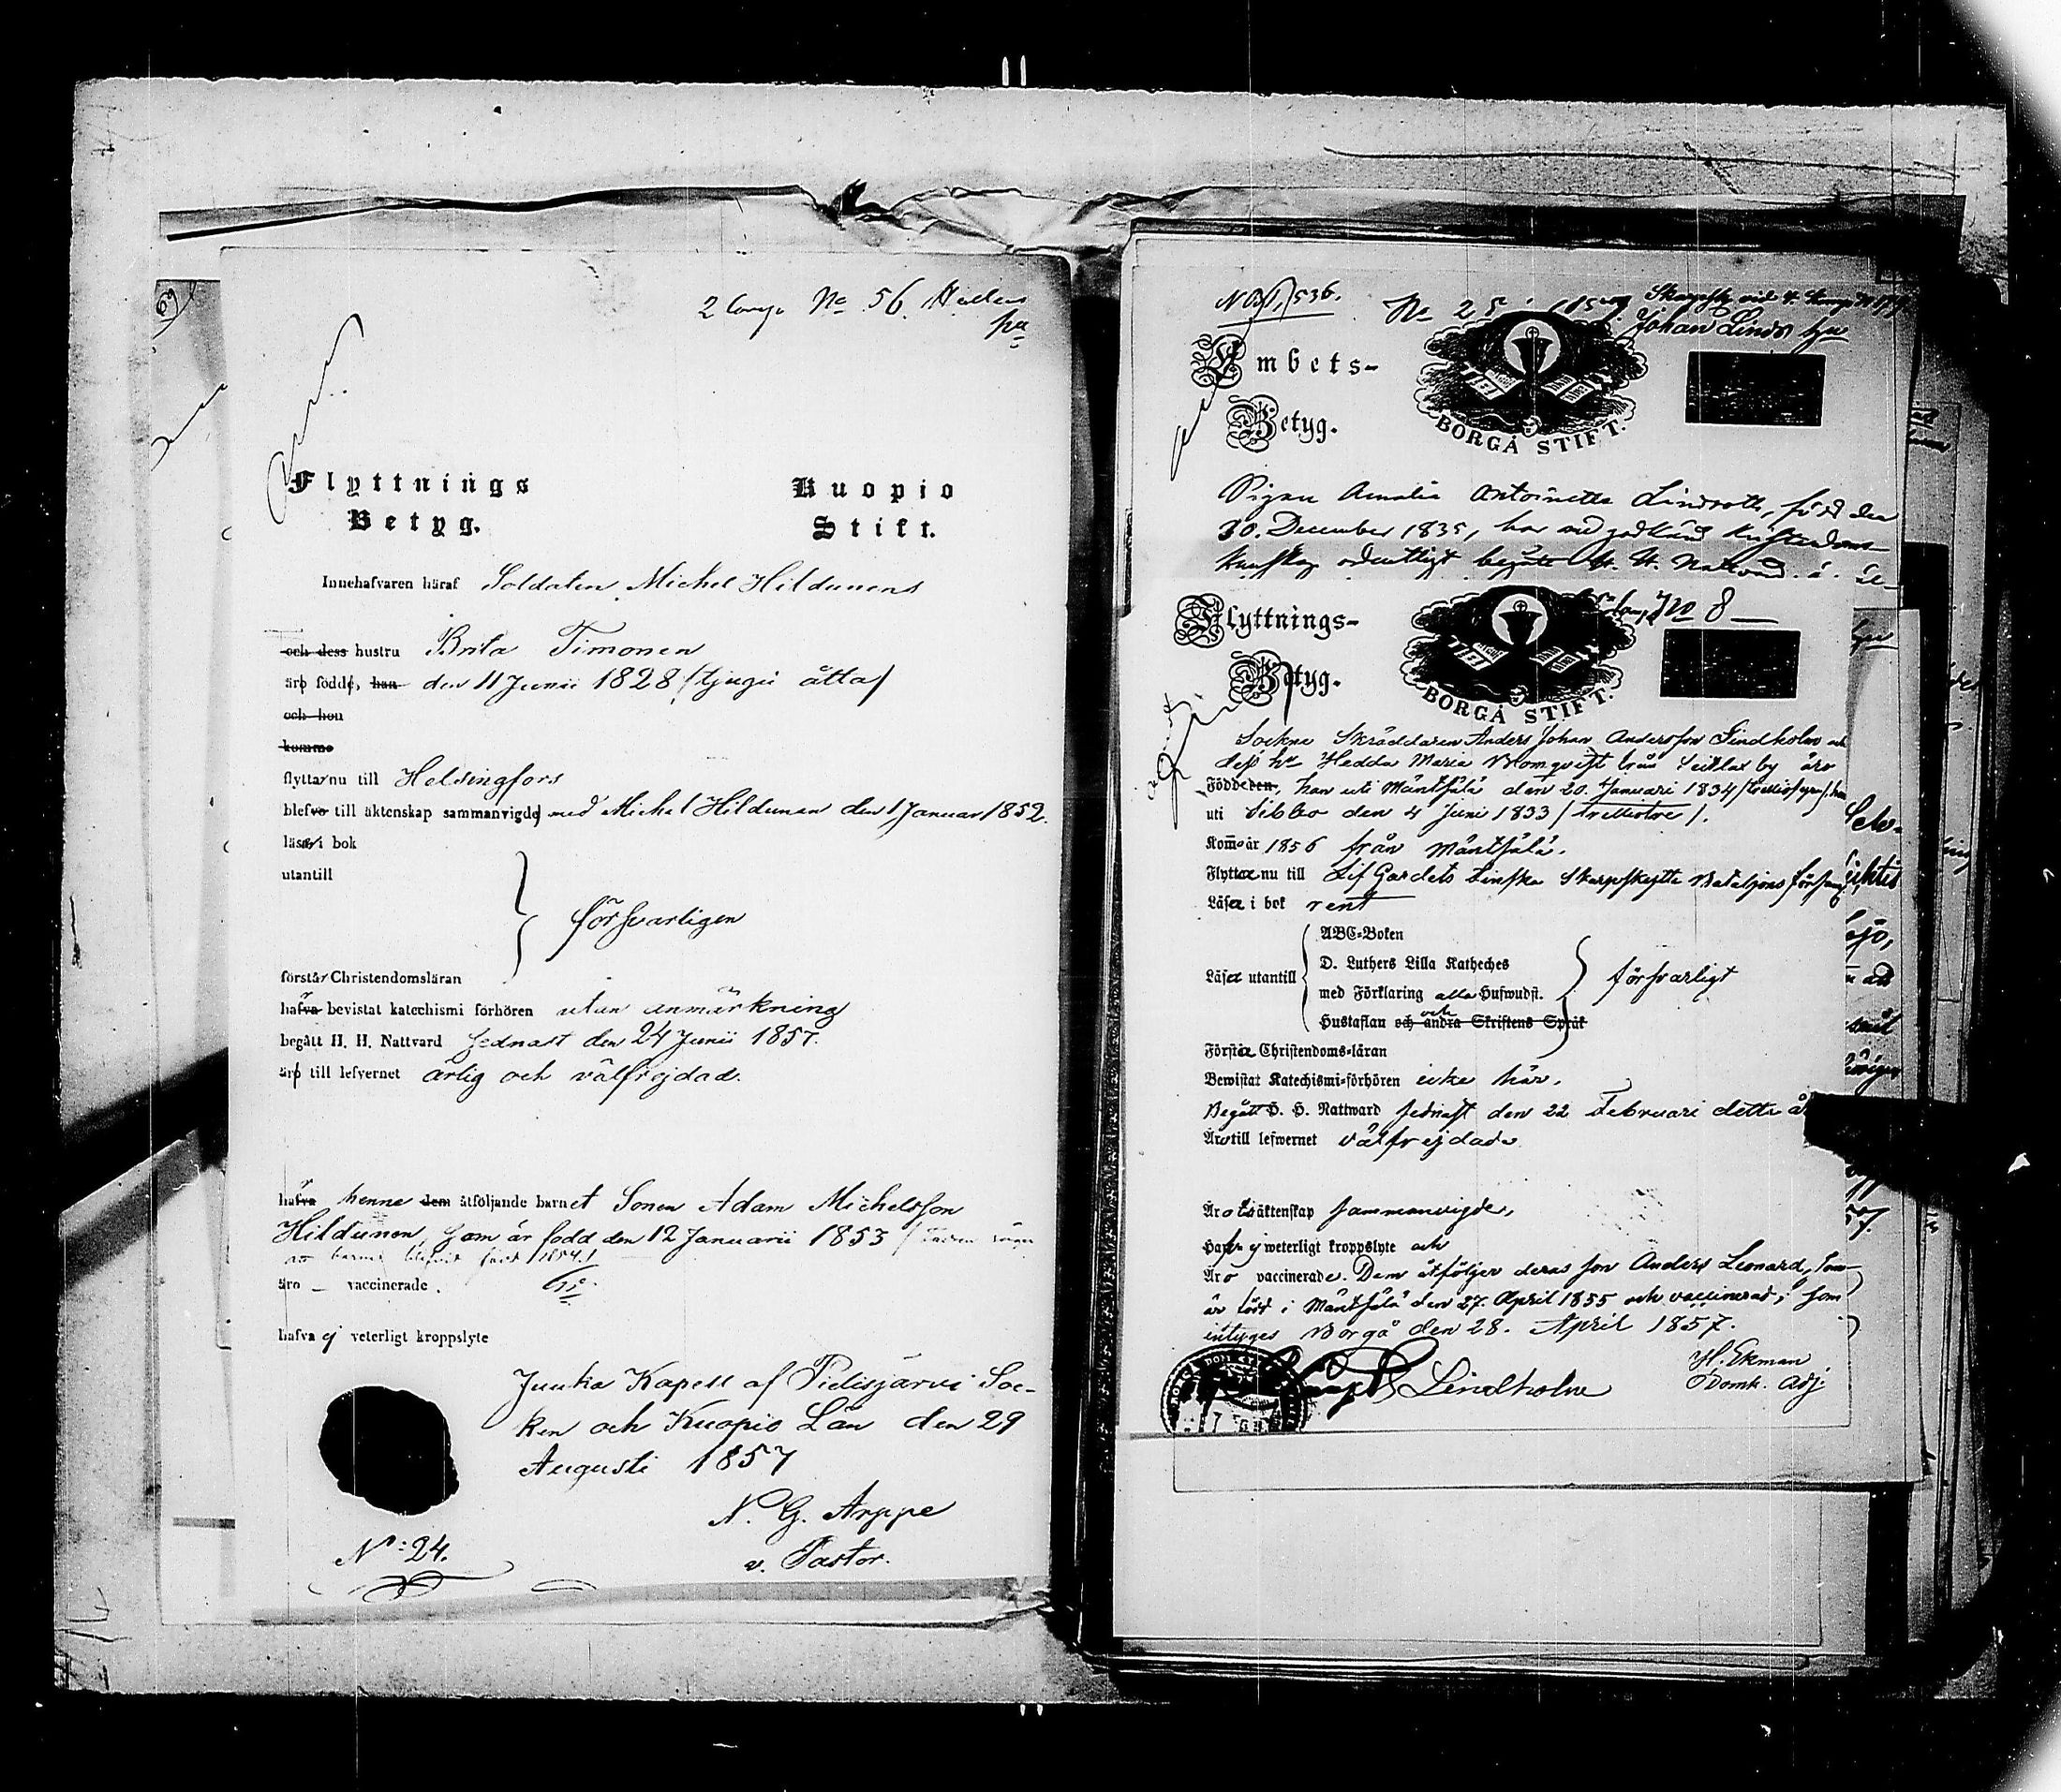 2 Comp No 56.
Flyttnings
Betyg.
Kuopio
Stift.
Innehafvaren häraf Soldaten Michel Hildunens
och dess hustru Brita Timonen
äro födde, han den 11 Junii 1828 (tjugu åtta)
och hon
komme
flyttar nu till Helsingfors
blefvo till äktenskap sammanvigde med Michel Hildunen den 1 Januar 1852.
läser i bok
utantill
försvarligen
förstår Christendomsläran
hafva bevistat katechismi förhören utan anmärkning
begått H. H. Nattvard sednast den 24 Junii 1857.
äro till lefvernet ärlig och välfrejdad.
hafva henne dem åtföljande barnet Sonen Adam Michelsson
Hildunen, som är född den 12 Januarii 1853
1854.
äro vaccinerade.
hafva ej veterligt kroppslyte
Juuka Kapell af Pielisjärvi Soc-
ken och Kuopio Län den 29
Augusti 1857
N. G. Arppe
v. Pastor.
No: 24.
536.
No 25 1857.
Johan Linds hu
Embets-
Betyg.
BORGÅ STIFT.
Pigan Amalia Antoinetta Lindroth, född den
30. December 1835, har med godkänd Kristendoms-
kunskap ordentligt begått H. H. Nattvard
No 8
Flyttnings-
Betyg.
BORGÅ STIFT.
Sockne Skräddaren Anders Johan Andersson Lindholm och
dess hu Hedda Maria Blomqvist från by äro
Född den, han uti Mäntsälä den 20. Januari 1834
uti Sibbo den 4 Juni 1833 (trettiotre).
Kommo år 1856 från Mäntsälä.
Flytta nu till Lif Gardets Finska Skarpskytte Bataljons Församl
Läsa i bok rent
ABC-Boken
D. Luthers Lilla Katheches
Läsa utantill
med Förklaring alla Hufwudst.
försvarligt
Hustaflan och andra Skriftens Språk
Förstå Christendoms-läran
Bewistat Katechismi-förhören icke här.
Begått H. H. Nattward sednast den 22 Februari detta år
Äro till lefwernet välfrejdade
Äro till äktenskap sammanvigde,
Hafva ej weterligt kroppslyte och
Äro vaccinerade. Dem åtföljer deras son Anders Leonard, som
är född i Mäntsälä den 27. April 1855 och vaccinerad; som
intygas Borgå den 28. April 1857.
Lindholm
H. Ekman
Domk. Adj